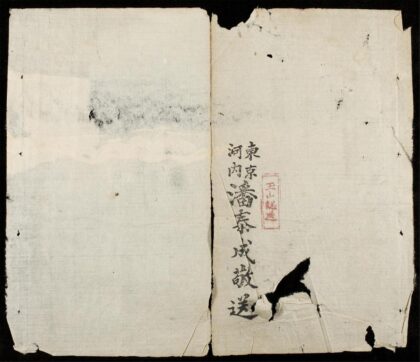 東京
河内
潘泰成敬送